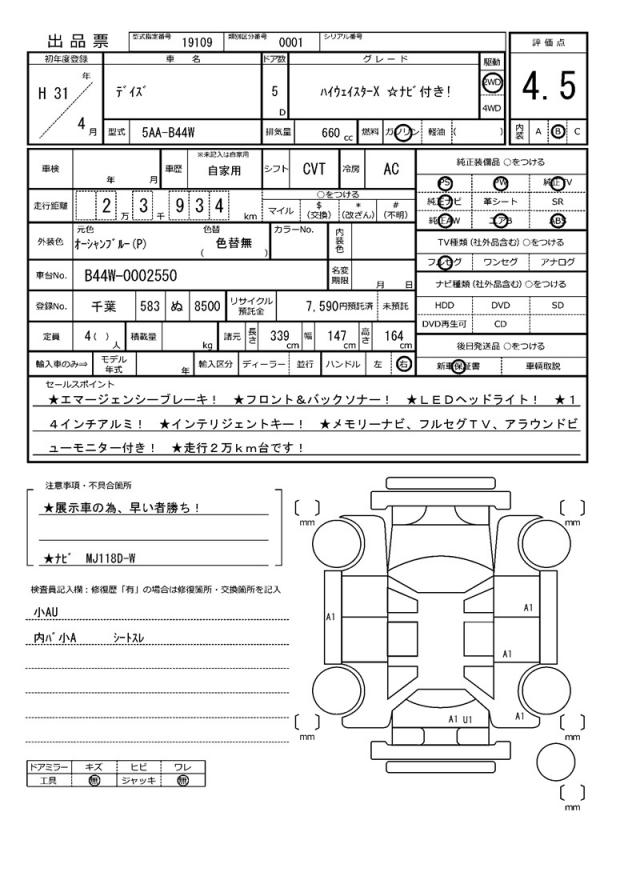 出品票 型式指定番号 19109 類別区分番号 0001 シリアル番号
評価点
初年度登録 車名 ドア数 グレード 駆動
H 31 年 ﾃﾞｲｽﾞ 5 D ﾊｲｳｪｲｽﾀｰX ☆ﾅﾋﾞ付き! 2WD 4.5
4WD
4 月 型式 5AA-B44W 排気量 660 cc 燃料 ガソリン 軽油 ( ) 内装 A B C
車検 年 月 車歴 ※未記入は自家用 自家用 シフト CVT 冷房 AC 純正装備品 ○をつける
PS PW 純正TV
走行距離 2 万 3 千 9 3 4 km ○をつける 純正ナビ 革シート SR
マイル $(交換) *(改ざん) #(不明) 純正AW エアB ABS
外装色 元色 ｵｰｼｬﾝﾌﾞﾙｰ(P) 色替 ( 色替無 ) カラーNo. 内装色 TV種類(社外品含む)○をつける
フルセグ ワンセグ アナログ
車台No. B44W-0002550 名変期限 月 日 ナビ種類(社外品含む)○をつける
登録No. 千葉 583 ぬ 8500 リサイクル預託金 7,590円預託済 未預託 HDD DVD SD
DVD再生可 CD
定員 4( ) 人 積載量 kg 諸元 長さ 339 cm 幅 147 cm 高さ 164 cm 後日発送品 ○をつける
輸入車のみ⇒ モデル年式 年 輸入区分 ディーラー 並行 ハンドル 左 右 新車保証書 車輌取説
セールスポイント
★エマージェンシーブレーキ! ★フロント＆バックソナー! ★ＬＥＤヘッドライト! ★１
４インチアルミ! ★インテリジェントキー! ★メモリーナビ、フルセグＴＶ、アラウンドビ
ューモニター付き! ★走行２万ｋｍ台です!
注意事項・不具合箇所
★展示車の為、早い者勝ち!
★ﾅﾋﾞ MJ118D-W
検査員記入欄：修復歴「有」の場合は修復箇所・交換箇所を記入
小AU
内ﾊﾞ小A ｼｰﾄｽﾚ
ドアミラー キズ ヒビ ワレ
工具 無 ジャッキ 無
[ ] mm [ ] mm
A1 A1
A1
A1 U1 A1
[ ] mm [ ] mm
[ ] mm